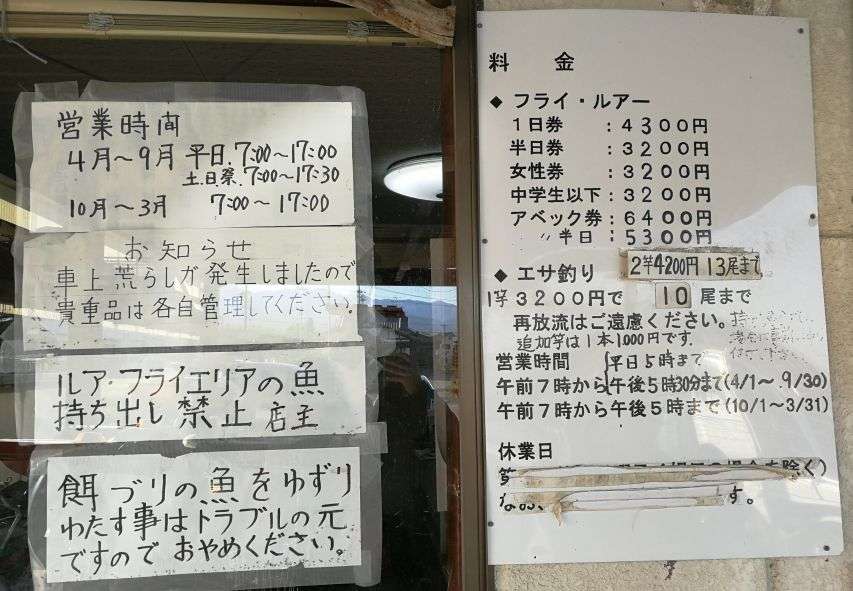 営業時間
4月～9月 平日.7:00～17:00
土.日祭.7:00～17:30
10月～3月 7:00～17:00
お知らせ
車上荒らしが発生しましたので
貴重品は各自管理してください。
ルア・フライエリアの魚
持ち出し禁止 店主
餌づりの魚をゆずり
わたす事はトラブルの元
ですのでおやめください。
料金
◆ フライ・ルアー
1日券 : 4300円
半日券 : 3200円
女性券 : 3200円
中学生以下 : 3200円
アベック券 : 6400円
〃 半日 : 5300円
◆ エサ釣り 2竿4200円 13尾まで
1竿3200円で 10 尾まで
再放流はご遠慮ください。
追加竿は1本1000円です.
営業時間 平日5時まで
午前7時から午後5時30分まで(4/1～9/30)
午前7時から午後5時まで(10/1～3/31)
休業日
除く)
す。